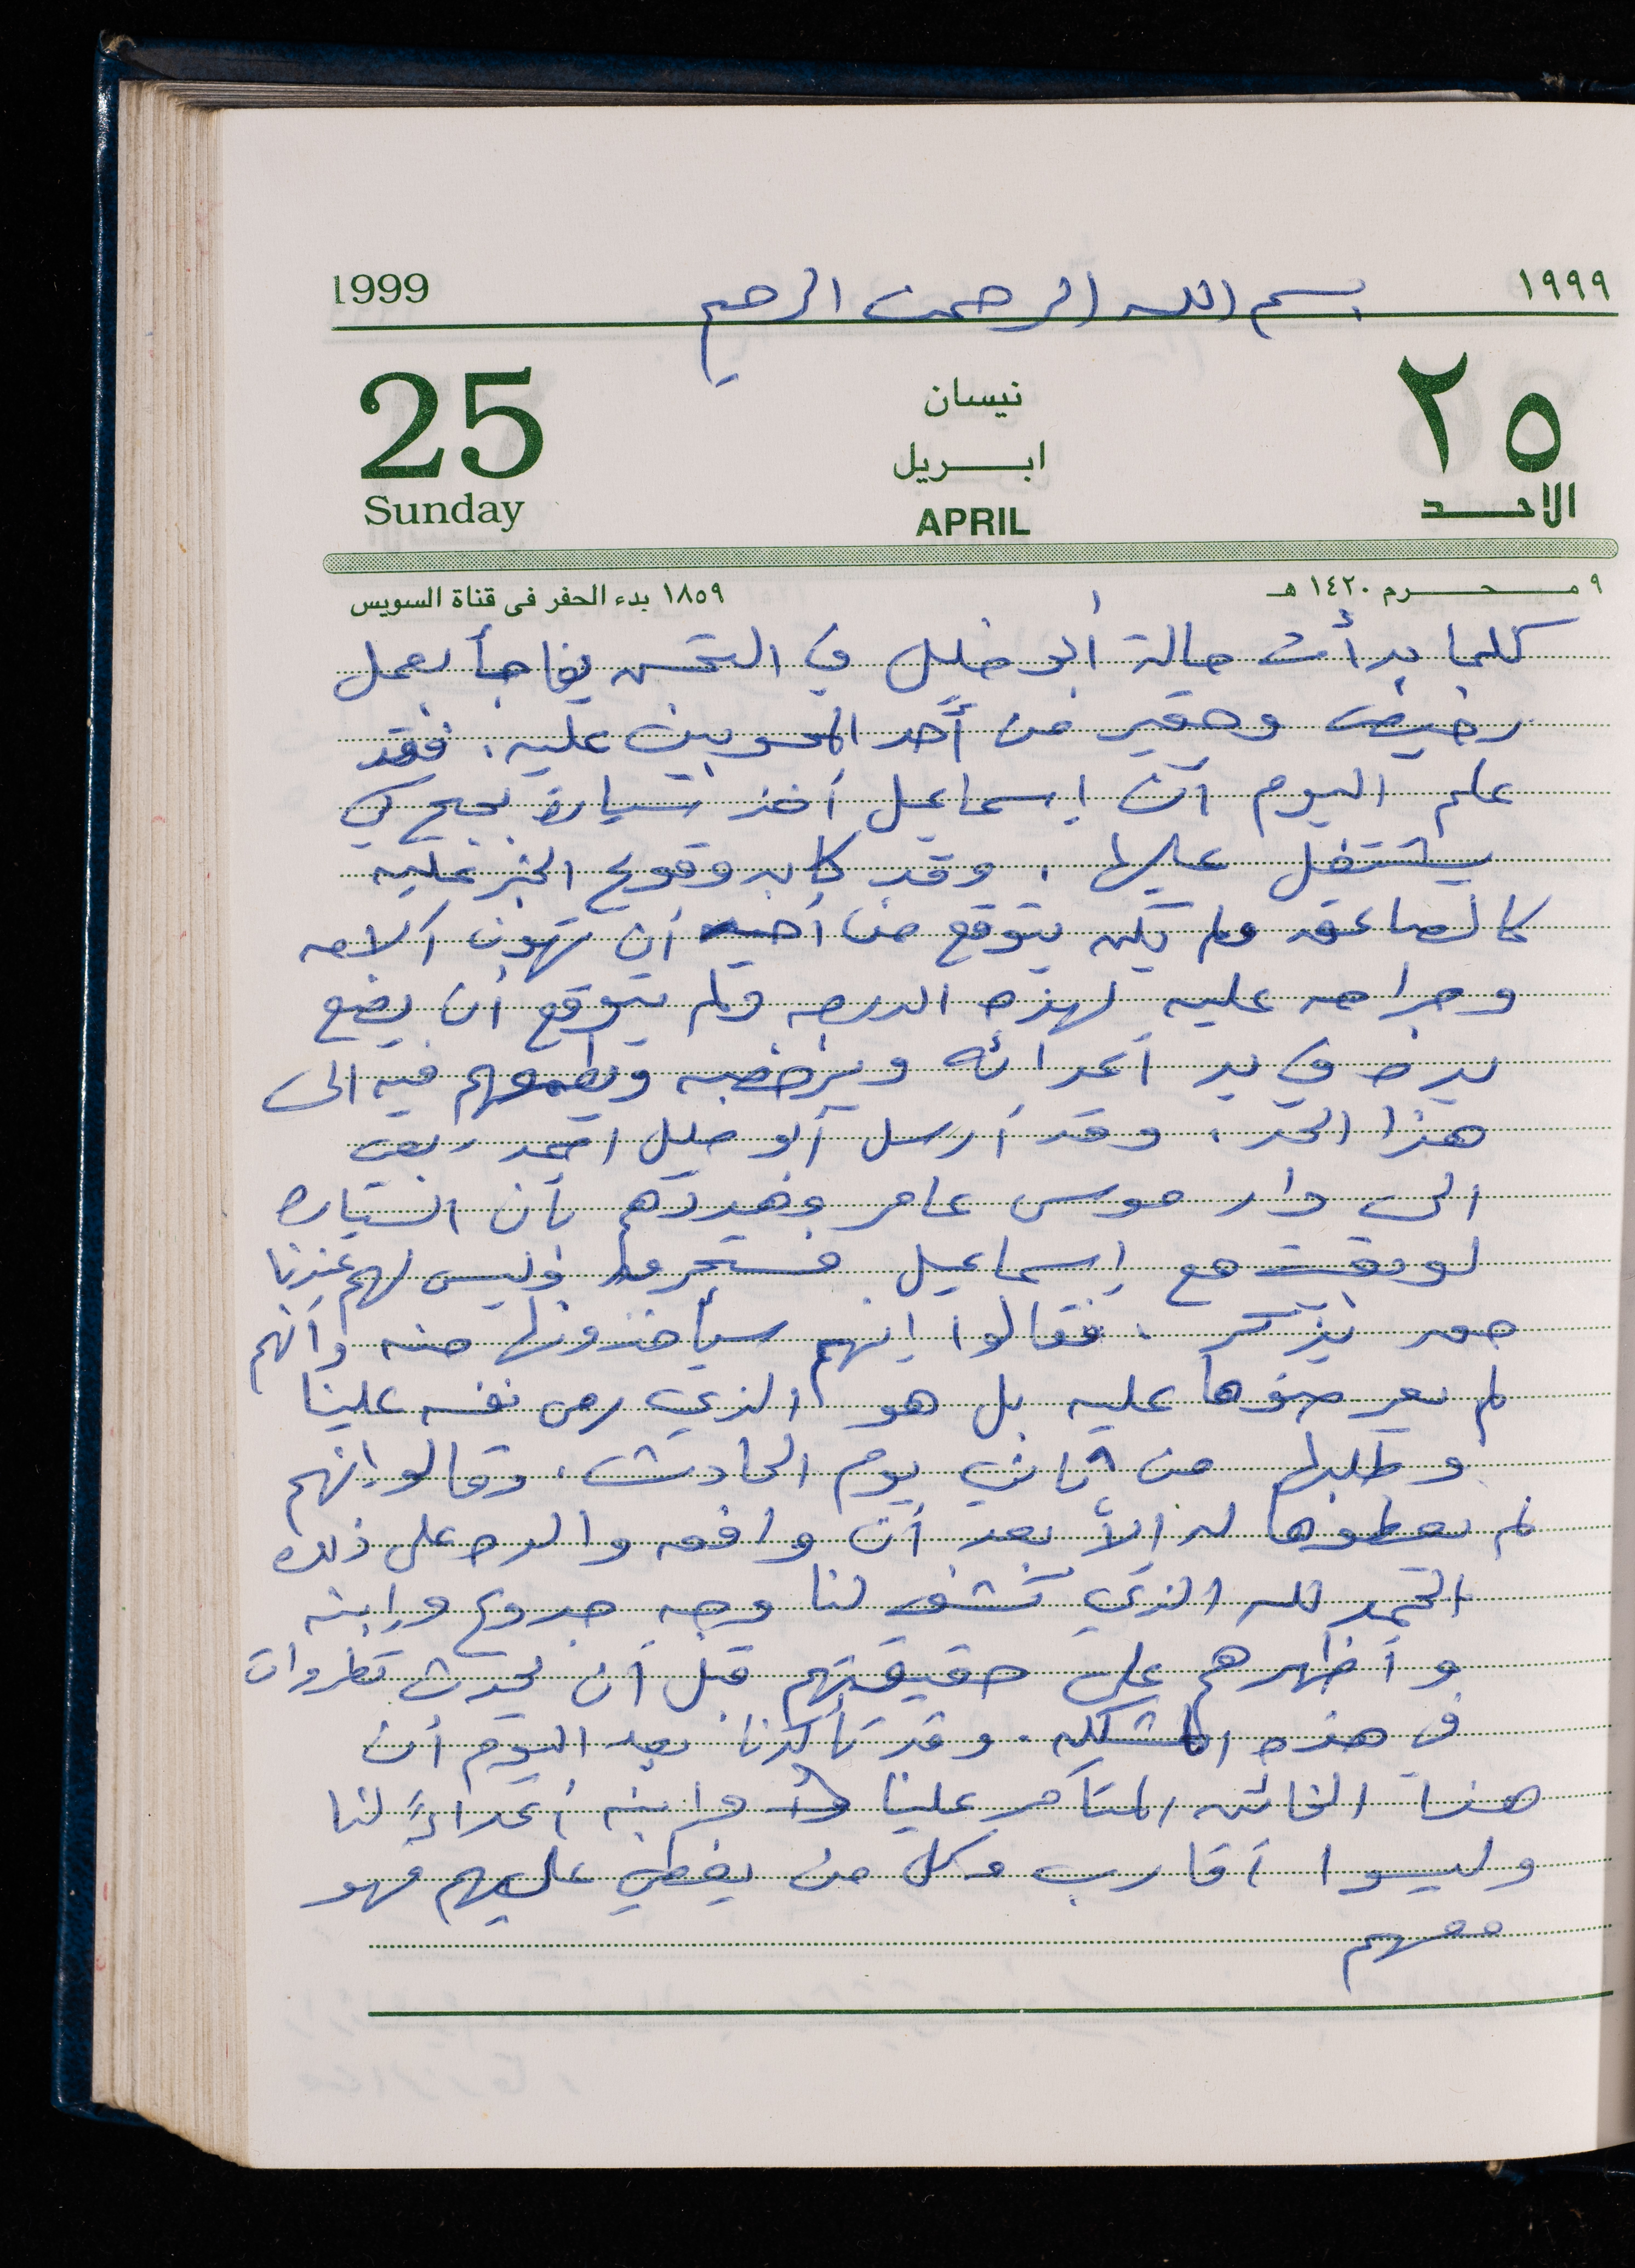 بسم الله الرحمن الرحيم
1999 ١٩٩٩
25 نيسان ٢٥
ابريل
Sunday APRIL الاحد
٩ محرم ١٤٢٠ هـ ١٨٥٩ بدء الحفر فى قناة السويس
كلما بدأت حالة أبو خليل في التحسن يفاجأ بعمل
رخيص وحقير من أحد المحسوبين عليه. فقد
علم اليوم أن إسماعيل أخذ سيارة بحبح كي
يشتغل عليها. وقد كان وقوع الخبر عليه
كالصاعقه ولم يكن يتوقع من أخيه أن تهون آلامه
وجراحه عليه لهذه الدرجه ولم يتوقع أن يضع
يده في يد أعدائه ويرخصه ويطمعهم فيه الى
هذا الحد. وقد أرسل أبو خليل احمد ربعي
الى دار موسى عامر وهددهم بأن السياره
لو بقيت مع إسماعيل فستحرق وليس لهم عندنا
حق يذكر. فقالوا إنهم سيأخذونها منه وأنهم
لم يعرضوها عليه بل هو الذي رمى نفسه علينا
وطلبها من ثاني يوم الحادث. وقالوا إنهم
لم يعطوها له إلا بعد أن وافق والده على ذلك
الحمد لله الذي كشف لنا وجه جدوع وابنه
وأظهرهم على حقيقتهم قبل أن يحدث تطورات
في هذه المشكله. وقد تأكدنا بعد اليوم أن
هذا الخائن المتآمر علينا هو وابنه أعداءً لنا
وليسوا أقارب وكل من يغطي عليهم فهو
معهم